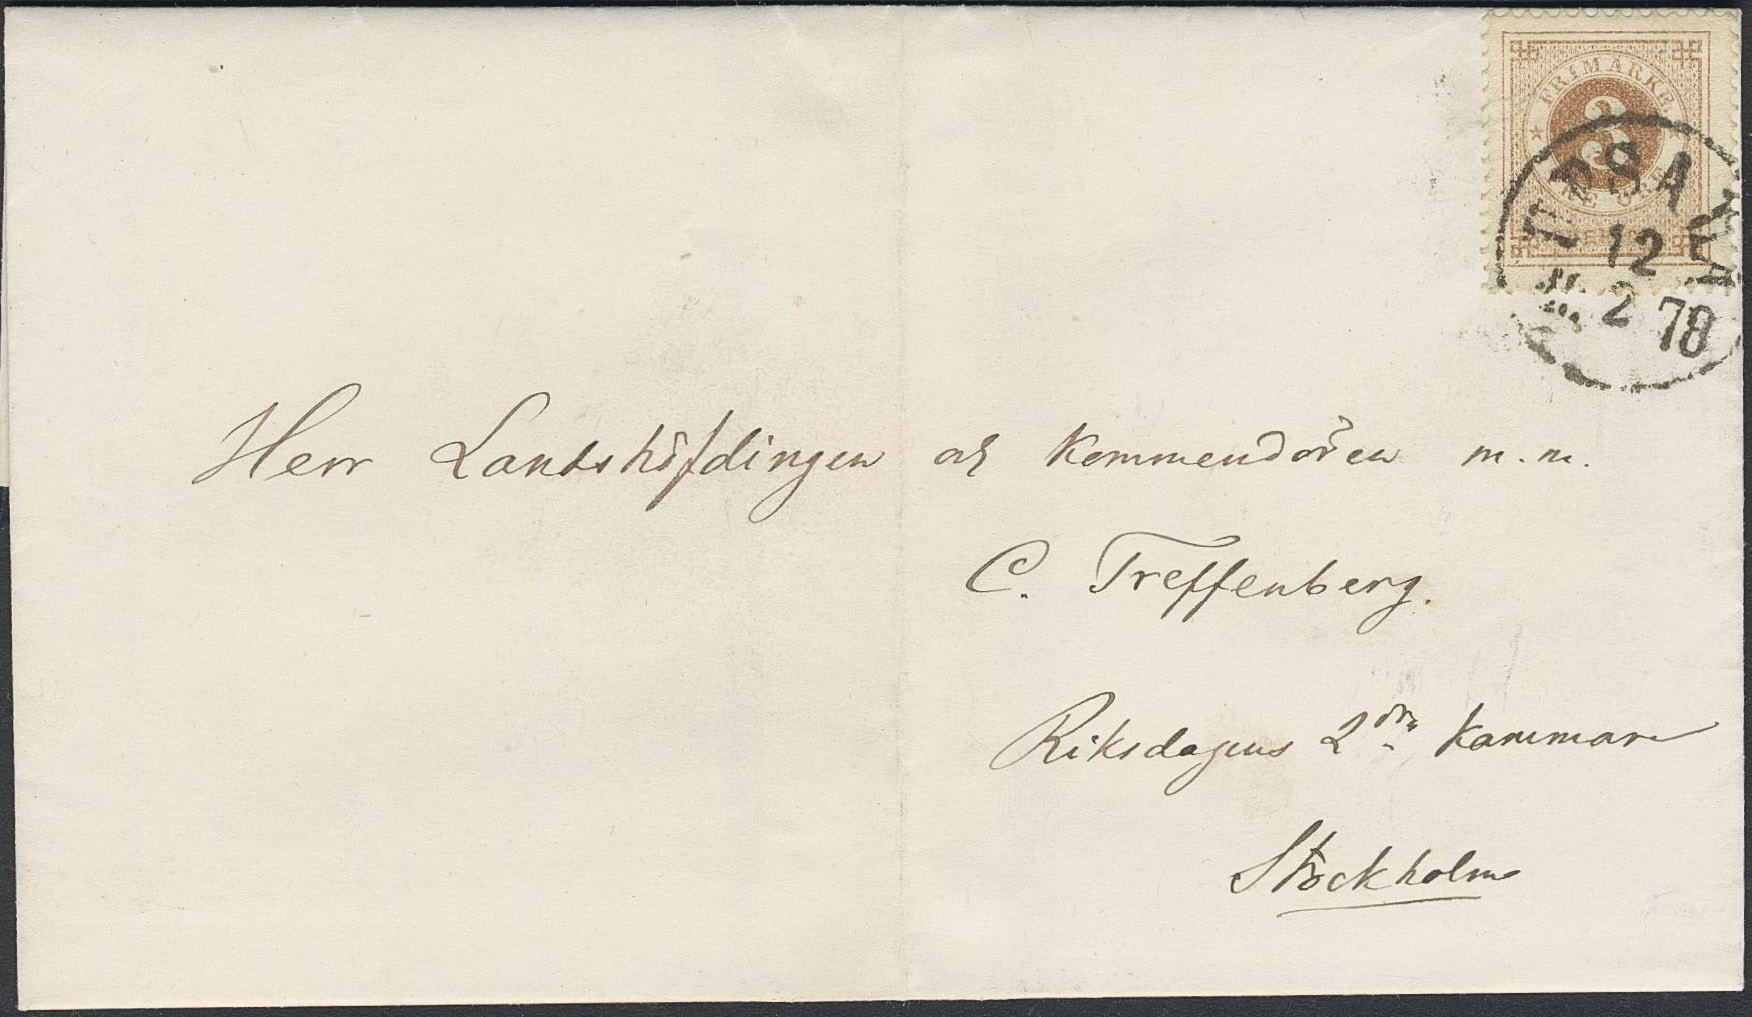 FRIMÄRKE
3
TRE ÖRE
UPSALA
12
2 78
Herr Landshöfdingen och Kommendören m.m.
C. Treffenberg.
Riksdagens 2dra Kammare
Stockholm